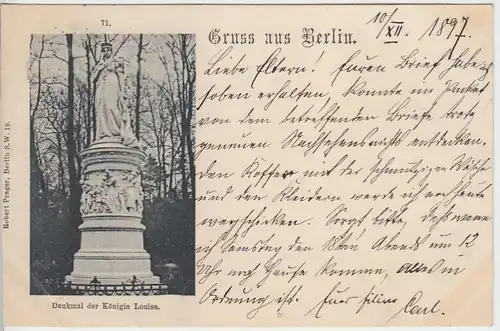 71.
Gruss aus Berlin.
10/XII. 1897
Liebe Eltern! Euren Brief habe
soben erhalten, konnte im Packet
von dem betreffenden Briefe trotz
genauen Nachsehens nichts entdecken.
den Koffer mit der schmutzigen Wäsche
und den Kleidern werde ich noch heute
verschicken. Sorgt bitte, daß wenn
ich Samstag den 18ten Abends um 12
Uhr nach Hause komme, alles in
Ordnung ist. Euer
Carl.
Robert Prager, Berlin S.W. 19.
Denkmal der Königin Louise.